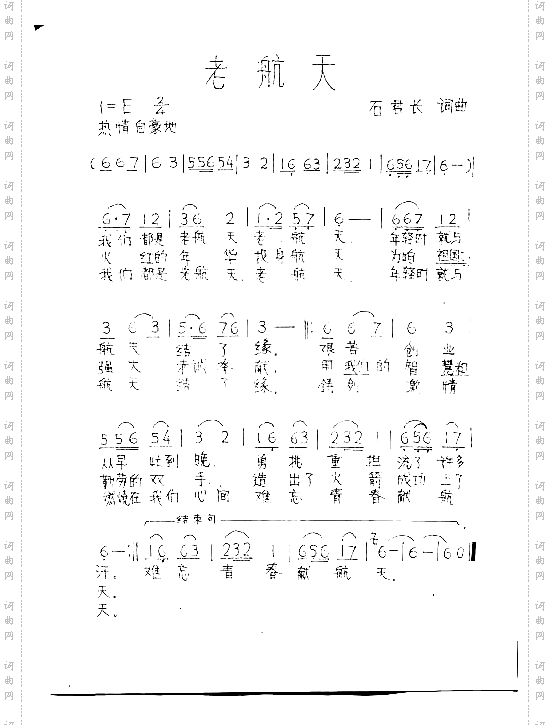 老航天
1=E 2/4
石 长 词曲
热情自豪地
(6 6 7 | 6 3 | 5 5 6 5 4 | 3 2 | 1 6 6 3 | 2 3 2 1 | 6 5 6 1 7 | 6 — )
6·7 1 2 | 3 6 2 | 1·2 5 7 | 6 — | 6 6 7 1 2 |
我们 都是 老航 天 老 航 天. 年轻时 就与
火 红的 年 华 投身航 天 为啦 祖国.
我们 都是 老航 天. 老 航 天. 年轻时 就与
3 6 3 | 5·6 7 6 | 3 — ‖: 6 6 7 | 6 3 |
航 天 结 了 缘. 艰苦 创 业
强大 来 献. 用 我们的 智 慧和
航 天 结 了 缘. 情
5 5 6 5 4 | 3 2 | 1 6 6 3 | 2 3 2 1 | 6 5 6 1 7 |
从早 忙到 晚. 勇挑 重 担 流了 许多
勤劳的 双 手. 造出了 火 箭 成功 上了
燃烧在 我们 心间 难忘 青 春 献 航
结束句
6 — :‖ 1 6 6 3 | 2 3 2 1 | 6 5 6 1 7 | 6 — 6 — 6 0 ‖
汗。 难忘 青 春 献 航 天.
天.
天.
词曲网
词曲网
词曲网
词曲网
词曲网
词曲网
词曲网
词曲网
词曲网
词曲网
词曲网
词曲网